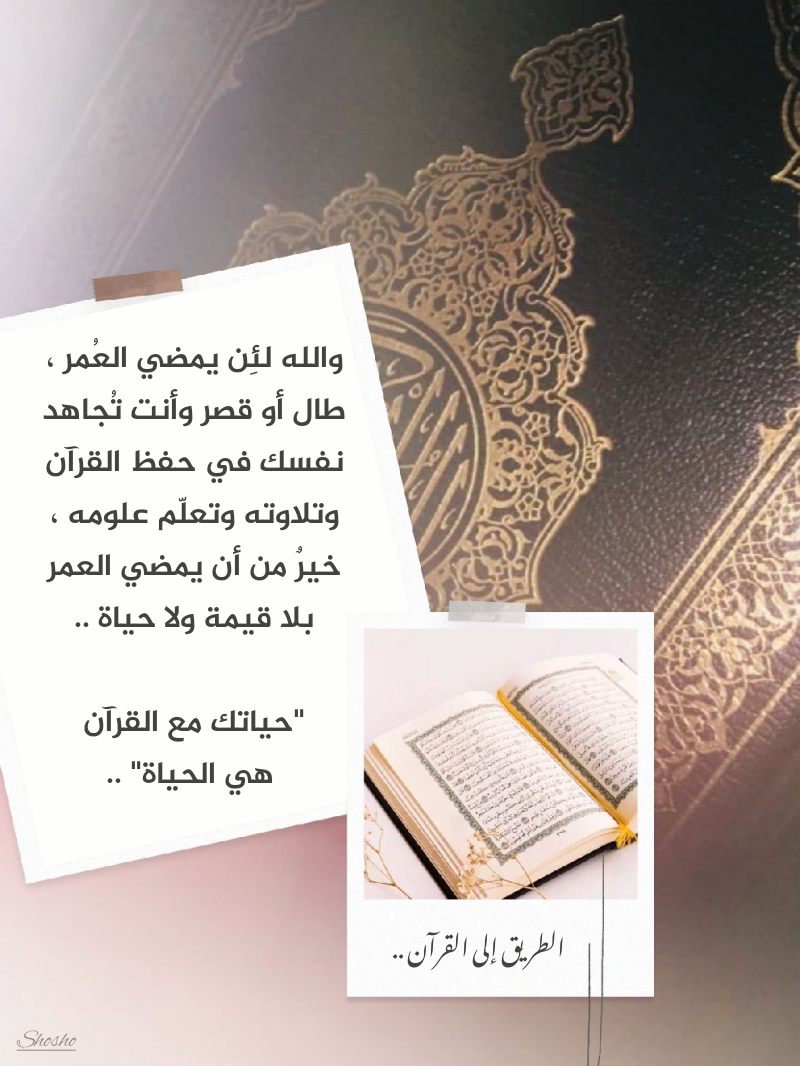 والله لئِن يمضي العُمر ،
طال أو قصر وأنت تُجاهد
نفسك في حفظ القرآن
وتلاوته وتعلّم علومه ،
خيرُ من أن يمضي العمر
بلا قيمة ولا حياة ..
"حياتك مع القرآن
هي الحياة" ..
الطريق إلى القرآن ..
Shosho